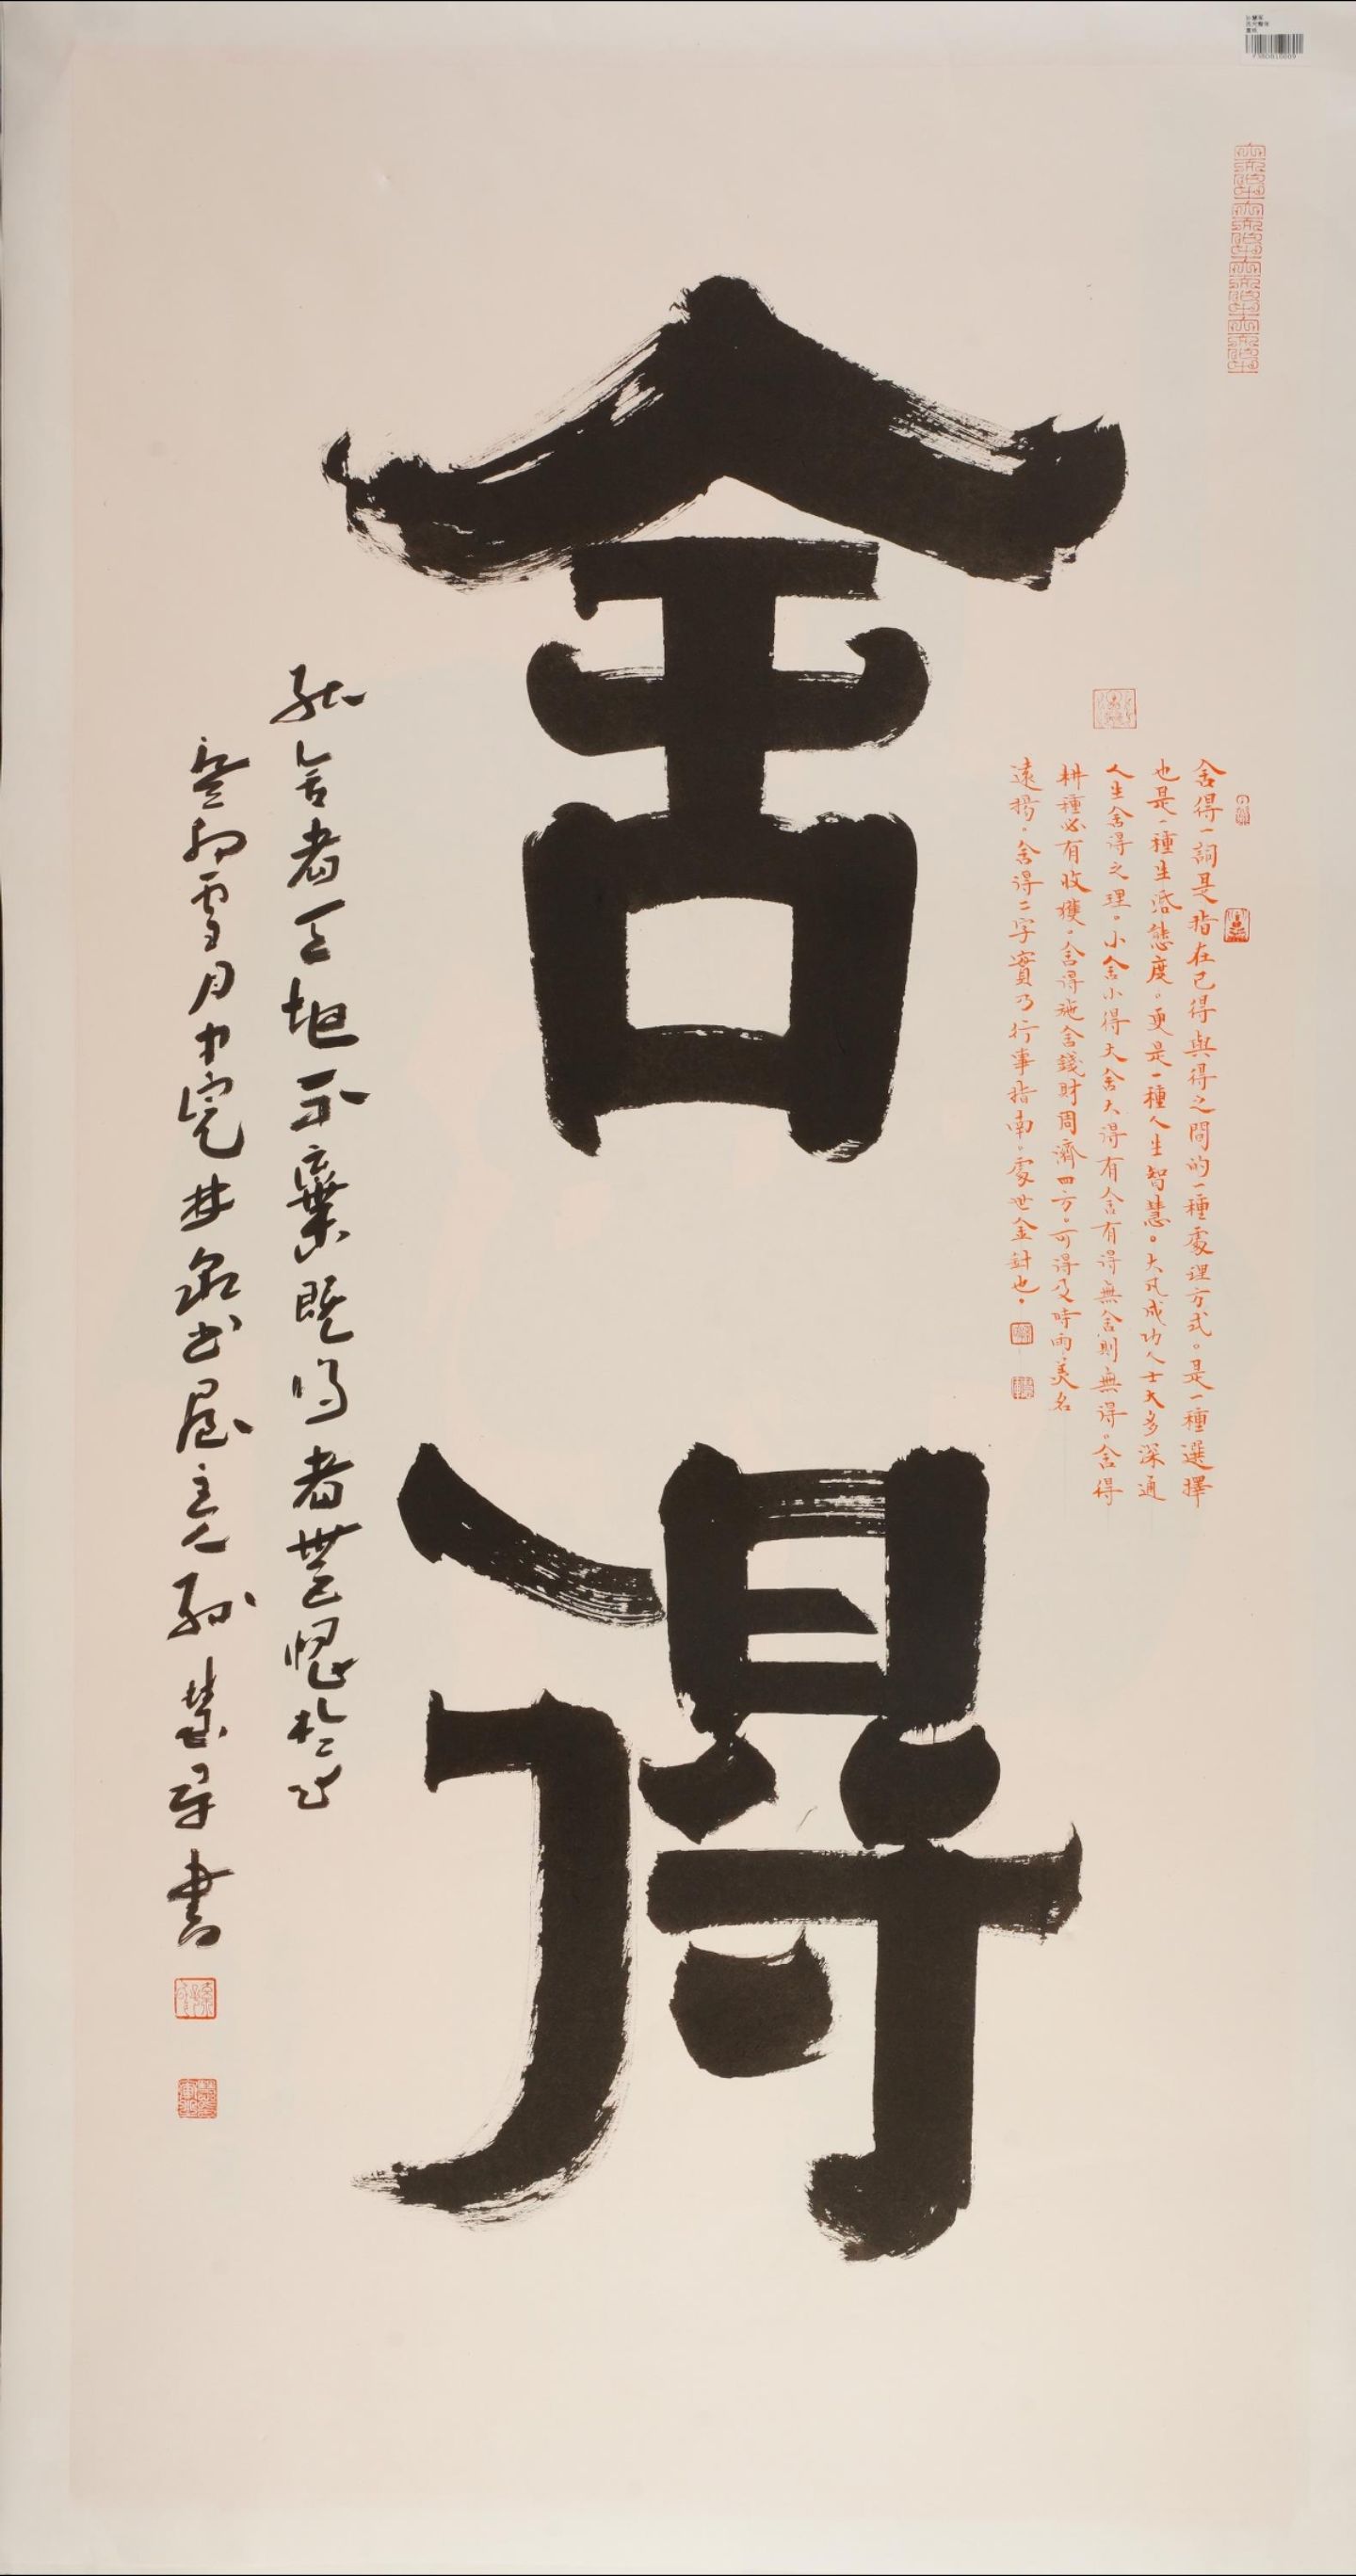 舍得
舍得一詞是指在已得與得之間的一種處理方式。是一種選擇
也是一種生活態度。更是一種人生智慧。大凡成功人士大多深通
人生舍得之理。小舍小得大舍大得有舍有得無舍則無得。舍得
耕種必有收獲。舍得施舍錢財周濟四方。可得及時雨美名
遠揚。舍得二字實乃行事指南。處世金針也。
能舍者天地不棄既得者無愧於心
初雪月中浣林泉書屋主人孫慧군書